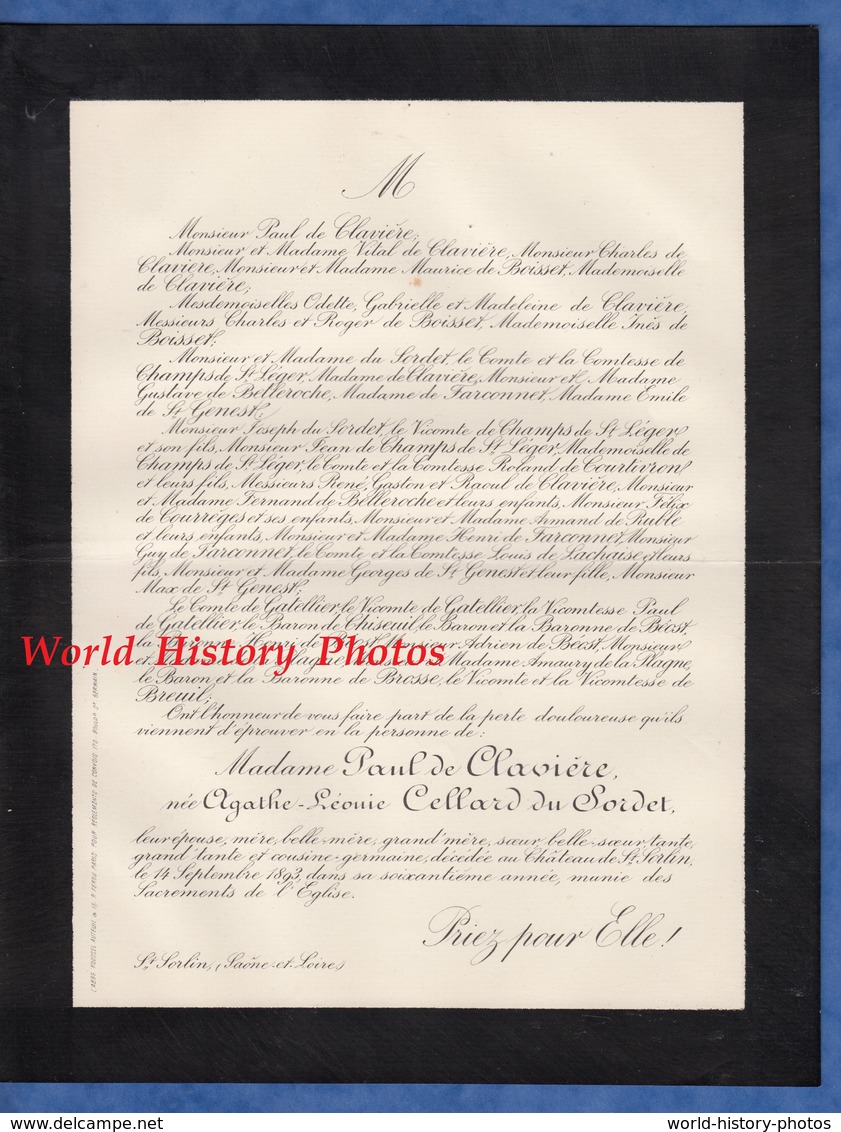 M
Monsieur Paul de Clavière;
Monsieur et Madame Vital de Clavière, Monsieur Charles de
Clavière, Monsieur et Madame Maurice de Boisset, Mademoiselle
de Clavière;
Mesdemoiselles Odette, Gabrielle et Madeleine de Clavière,
Messieurs Charles et Roger de Boisset, Mademoiselle Inès de
Boisset;
Monsieur et Madame du Sordet, le Comte et la Comtesse de
Champs de St Léger, Madame de Clavière, Monsieur et Madame
Gustave de Belleroche, Madame de Farconnet, Madame Emile
de St Genest;
Monsieur Joseph du Sordet, le Vicomte de Champs de St Léger
et son fils, Monsieur Jean de Champs de St Léger, Mademoiselle de
Champs de St Léger, le Comte et la Comtesse Roland de Courtivron
et leurs fils, Messieurs René, Gaston et Raoul de Clavière, Monsieur
et Madame Fernand de Belleroche et leurs enfants, Monsieur Félix
de Courrèges et ses enfants, Monsieur et Madame Armand de Ruble
et leurs enfants, Monsieur et Madame Henri de Farconnet, Monsieur
Guy de Farconnet, le Comte et la Comtesse Louis de Lachaise et leurs
fils, Monsieur et Madame Georges de St Genest et leur fille, Monsieur
Max de St Genest;
Le Comte de Gatellier, le Vicomte de Gatellier, la Vicomtesse Paul
de Gatellier, le Baron de Chiseuil, le Baron et la Baronne de Béost,
la Henri de Monsieur Adrien de Béost, Monsieur
et Madame Amaury de la Plagne,
le Baron et la Baronne de Brosse, le Vicomte et la Vicomtesse de
Breuil;
World History Photos
Ont l'honneur de vous faire part de la perte douloureuse qu'ils
viennent d'éprouver en la personne de:
Madame Paul de Clavière,
née Agathe-Léonie Cellard du Sordet,
leur épouse, mère, belle-mère, grand'mère, sœur, belle-sœur, tante,
grand'tante et cousine-germaine, décédée au Château de St Sorlin,
le 14 Septembre 1893, dans sa soixantième année, munie des
Sacrements de l'Eglise.
Priez pour Elle!
St Sorlin, (Saône-et-Loire)
www.delcampe.net
world-history-photos